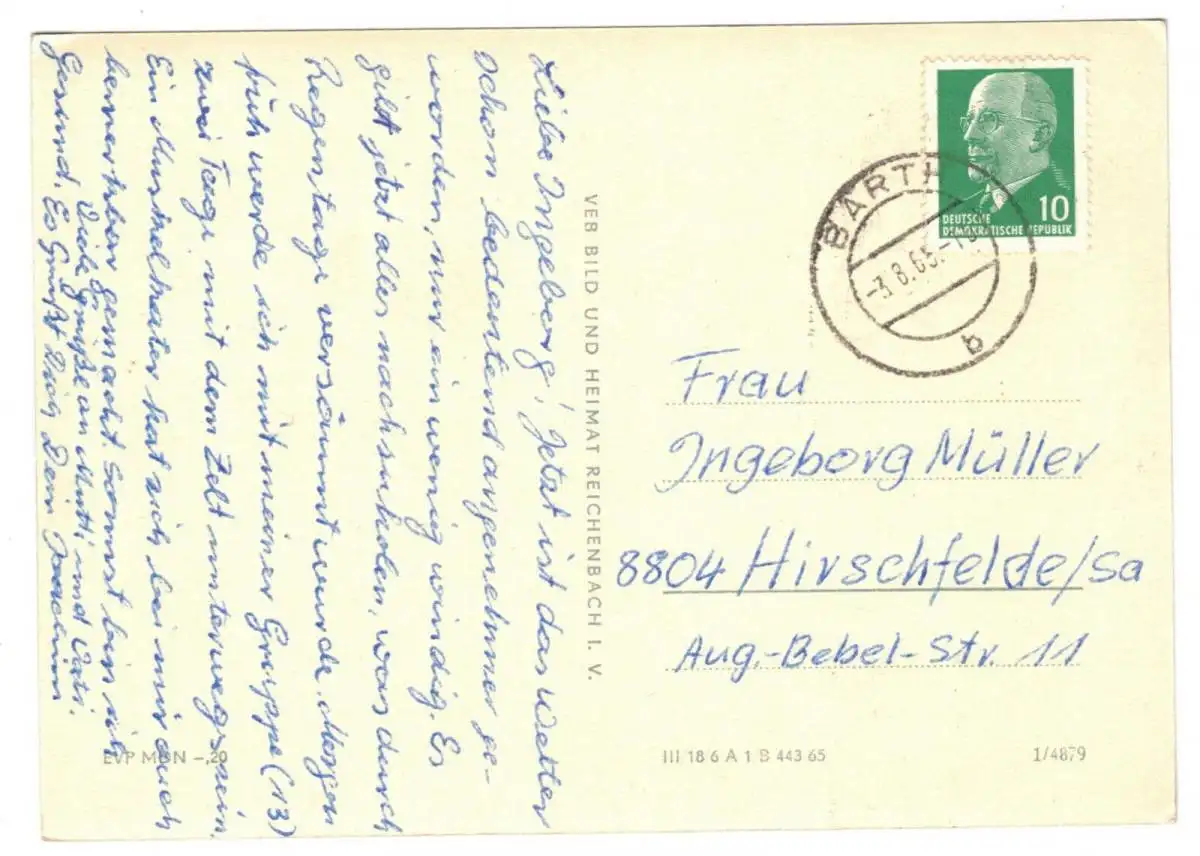 Liebe Ingeborg! Jetzt ist das Wetter
schon bedeutend angenehmer ge-
worden, nur ein wenig windig. Es
gilt jetzt alles nachzuholen, was durch
Regentage versäumt wurde. Morgen
früh werde ich mit meiner Gruppe (13)
zwei Tage mit dem Zelt unterwegs sein.
Ein Muskelkater hat sich bei mir auch
bemerkbar gemacht. Sonnst bin ich
Gesund. Es Grüßt Dich Dein Joachim
Viele Grüße an Mutti und Vati.
VEB BILD UND HEIMAT REICHENBACH I. V.
DEUTSCHE
DEMOKRATISCHE REPUBLIK
10
BARTH
-3.8.65.-
b
Frau
Ingeborg Müller
8804 Hirschfelde/Sa
Aug.-Bebel-Str. 11
EVP MDN -,20
III 18 6 A 1 B 443 65
1/4879